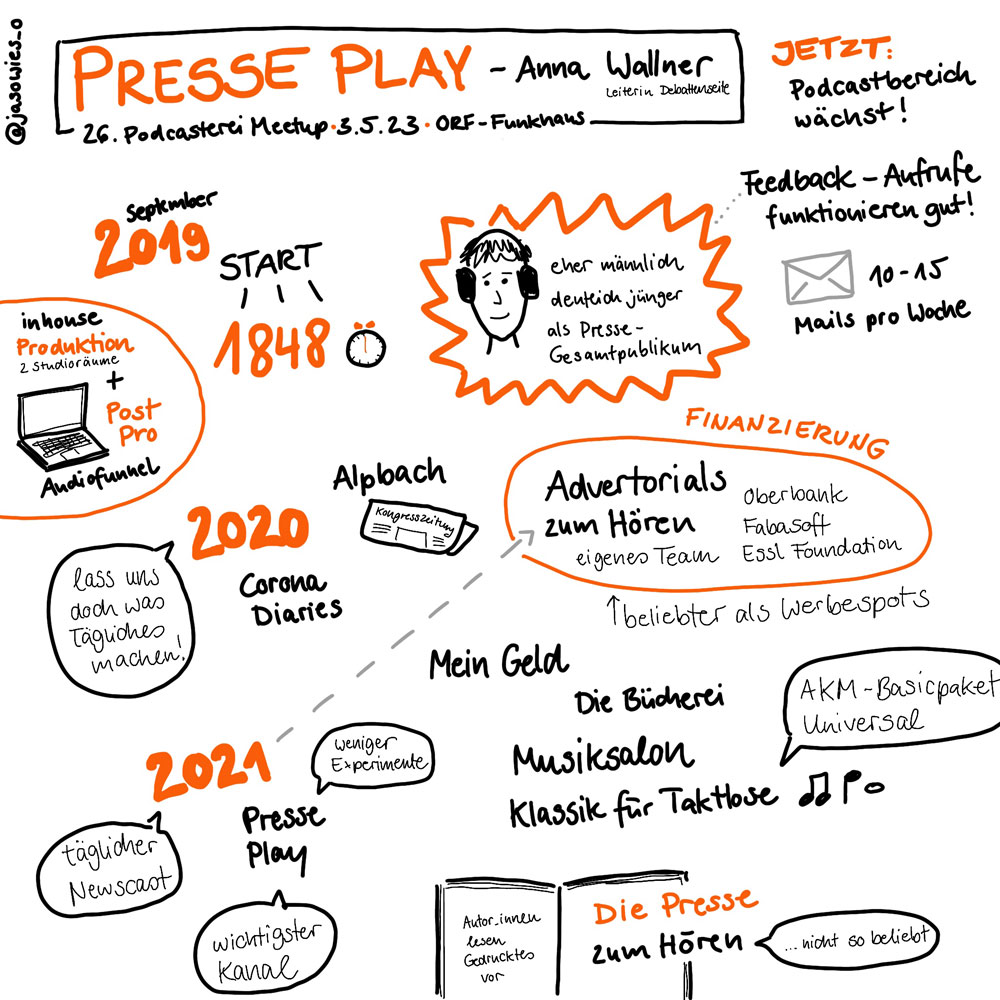 @jasowies_o
PRESSE PLAY - Anna Wallner
Leiterin Debattenseite
26. Podcasterei Meetup · 3.5.23 · ORF-Funkhaus
JETZT:
Podcastbereich
wächst!
September
2019
START
1848
inhouse
Produktion
2 Studioräume
+
Post
Pro
Audiofunnel
eher männlich
deutlich jünger
als Presse-
Gesamtpublikum
Feedback - Aufrufe
funktionieren gut!
10-15
Mails pro Woche
FINANZIERUNG
Advertorials
zum Hören
eigenes Team
Oberbank
Fabasoft
Essl Foundation
↑beliebter als Werbespots
Alpbach
Kongresszeitung
2020
Corona
Diaries
lass uns
doch was
Tägliches
machen!
Mein Geld
Die Bücherei
Musiksalon
Klassik für Taktlose
AKM-Basicpaket
Universal
2021
weniger
Experimente
Presse
Play
täglicher
Newscast
wichtigster
Kanal
Autor_innen
lesen
Gedrucktes
vor
Die Presse
zum Hören
...nicht so beliebt